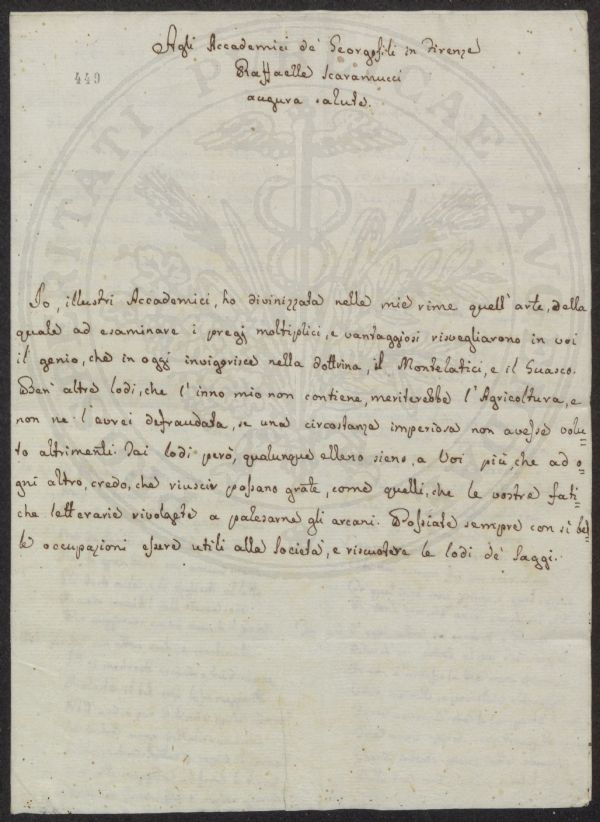 Agli Accademici de' Georgofili in Firenze
449
Raffaelle Scaramucci
augura salute.
Io, illustri Accademici, ho divinizzata nelle mie rime quell'arte, dalla
quale ad esaminare i pregj moltiplici, e vantaggiosi risvegliarono in voi
il genio, che in oggi invigorisce nella dottrina, il Montelatici, e il Guasco.
Ben' altre lodi, che l'inno mio non contiene, meriterebbe l'Agricoltura, e
non ne l'avrei defraudata, se una circostanza imperiosa non avesse volu=
to altrimenti. Tai lodi però, qualunque elleno sieno, a Voi più, che ad o=
gni altro, credo, che riuscir possano grate, come quelli, che le vostre fati=
che letterarie rivolgete a palesarne gli arcani. Possiate sempre con sì bel=
le occupazioni essere utili alla Società, e riscuotere le lodi de' Saggi.
PUBLICAE